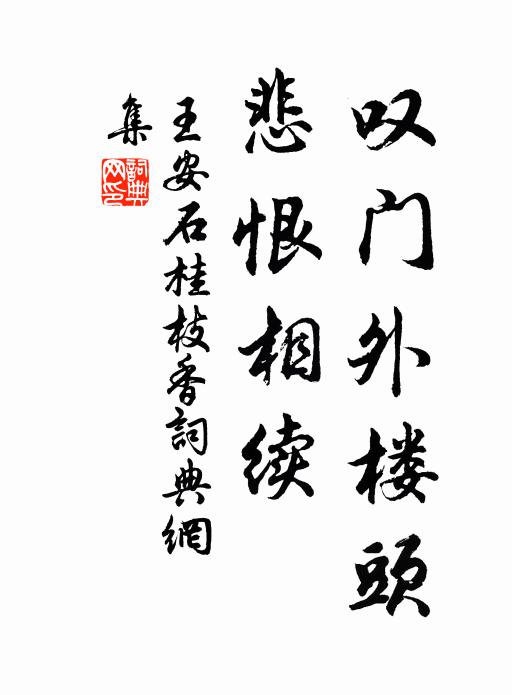 叹门外楼頭
悲恨相续
王安石桂枝香詞典網
集
詞典
网印